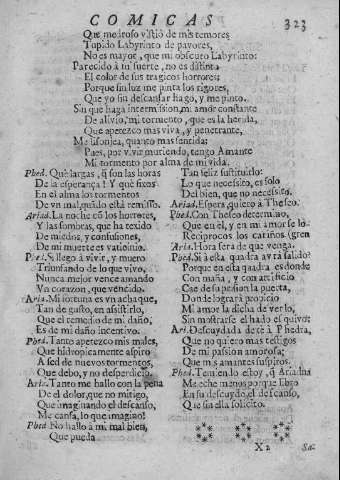 COMICAS 323
Que medroso vistió de mis temores
Tupido Labyrinto de pavores,
No es mayor, que mi obscuro Labyrinto:
Parecido à tu suerte, no es distinta
El color de sus tragicos horrores;
Porque sin luz me pinta los rigores,
Que yo sin descansar hago, y me pinto.
Sin que haga intermission, mi amor constante
De alivio, mi tormento, que es la herida,
Que apetezco mas viva, y penetrante,
Me lisonjea, quanto mas sentida:
Pues, por vivir muriendo, tengo Amante
Mi tormento por alma de mi vida.
Phed. Què largas, q̃ son las horas
De la esperança! Y que fixos
En el alma los tormentos
De vn mal, quãdo està remisso.
Ariad. La noche cõ los horrores,
Y las sombras, que ha texido
De miedos, y confusiones,
De mi muerte es vaticinio.
Phed. Si llego à vivir, y muero
Triunfando de lo que vivo,
Nunca mejor vence amando
Vn corazon, que vencido.
Aria. Mi fortuna es vn achaque,
Tan de gusto, en assistirlo,
Que el remedio de mi daño,
Es de mi daño incentivo.
Phed. Tanto apetezco mis males,
Que hidropicamente aspiro
A sed de nuevos tormentos,
Que debo, y no desperdicio.
Aria. Tanto me hallo con la pena
De el dolor, que no mitigo,
Que imaginando el descanso,
Me cansa, lo que imagino!
Phed. No hallo à mi mal bien,
Que pueda
Tan feliz sustituìdo:
Lo que necessito, es solo
Del bien, que no necessito.
Ariad. Espera, quiero à Theseo.
Phed. Con Theseo determino,
Que en èl, y en mi amor se lo
Reciprocos los cariños (gren
Aria. Hora serà de que venga.
Phed. Si à esta quadra avrà salido?
Porque en esta quadra es donde
Con maña, y con artificio
Cae de su prision la puerta,
Donde logrará propicio
Mi amor la dicha de verlo,
Sin mostrarse el hado el quivo:
Ari. Descuydada dexè à Phedra,
Que no quiero mas testigos
De mi passion amorosa;
Que mis amantes suspiros.
Phed. Temiendo estoy, q̃ Ariadna
Me eche menos, porque libro
En su descuydo, el descanso,
Que sin ella solicito.
X 2 Sa-